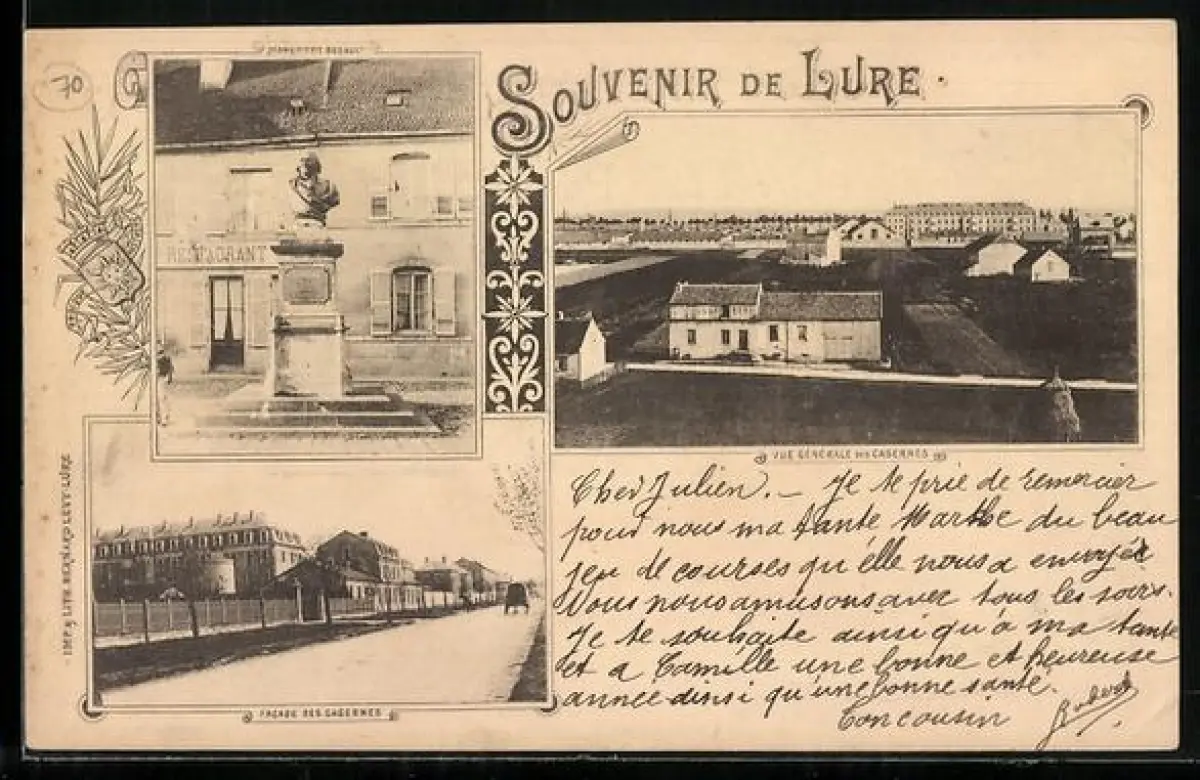 70
MONUMENT DESAULT
SOUVENIR DE LURE.
RESTAURANT
VUE GÉNÉRALE DES CASERNES
FAÇADE DES CASERNES
IMP & LITH. BERNARD LEVY LURE
Cher Julien. – Je te prie de remercier
pour nous ma tante Marthe du beau
jeu de courses qu'elle nous a envoyé
Nous nous amusons avec tous les soirs.
Je te souhaite ainsi qu'à ma tante
et a Camille une bonne et heureuse
année ainsi qu'une bonne santé.
Ton cousin
Robert